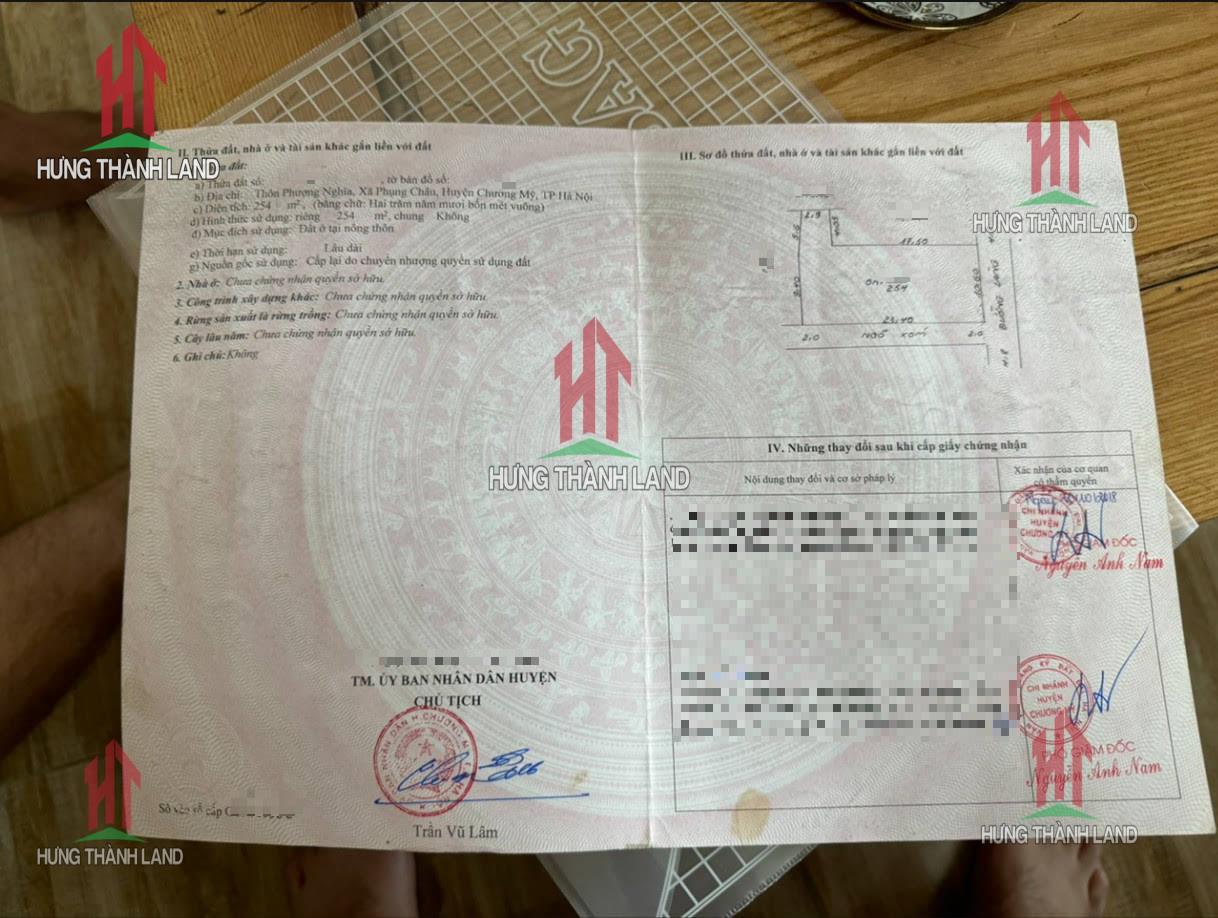 HT
HƯNG THÀNH LAND
II. Thửa đất, nhà ở và tài sản khác gắn liền với đất
đất:
a) Thửa đất số: , tờ bản đồ số:
b) Địa chỉ: Thôn Phượng Nghĩa, Xã Phụng Châu, Huyện Chương Mỹ, TP Hà Nội
c) Diện tích: 254 m², (bằng chữ: Hai trăm năm mươi bốn mét vuông)
d) Hình thức sử dụng: riêng 254 m², chung Không
đ) Mục đích sử dụng: Đất ở tại nông thôn
e) Thời hạn sử dụng: Lâu dài
g) Nguồn gốc sử dụng: Cấp lại do chuyển nhượng quyền sử dụng đất
2. Nhà ở: Chưa chứng nhận quyền sở hữu.
3. Công trình xây dựng khác: Chưa chứng nhận quyền sở hữu.
4. Rừng sản xuất là rừng trồng: Chưa chứng nhận quyền sở hữu.
5. Cây lâu năm: Chưa chứng nhận quyền sở hữu.
6. Ghi chú: Không
TM. ỦY BAN NHÂN DÂN HUYỆN
CHỦ TỊCH
Trần Vũ Lâm
Số vào sổ cấp
HT
HƯNG THÀNH LAND
III. Sơ đồ thửa đất, nhà ở và tài sản khác gắn liền với đất
HT
HƯNG THÀNH LAND
2.9
17.50
254
23.40
2.0
NGÕ XÓM
2.0
ĐƯỜNG LÀNG
IV. Những thay đổi sau khi cấp giấy chứng nhận
Nội dung thay đổi và cơ sở pháp lý
Xác nhận của cơ quan
có thẩm quyền
CHI NHÁNH
HUYỆN
CHƯƠNG
GIÁM ĐỐC
Nguyễn Anh Nam
CHI NHÁNH
HUYỆN
CHƯƠNG
PHÓ GIÁM ĐỐC
Nguyễn Anh Nam
HT
HƯNG THÀNH LAND
HT
HƯNG THÀNH LAND